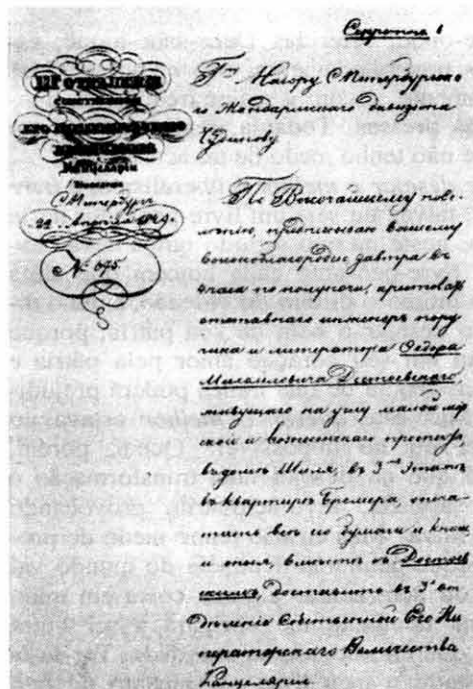 Секретно
ОТДѢЛЕНІЕ
СОБСТВЕННОЙ
ЕГО ИМПЕРАТОРСКАГО
ВЕЛИЧЕСТВА
Канцеляріи
С.Петербургъ
22 Апрѣля 1849
№ 675
Г-ну Маіору С.Петербургска-
го Жандармскаго дивизіона
Чудинову
По Высочайшему пове-
лѣнію, предписываю Вашему
Высокоблагородію завтра въ
часа по полуночи, арестовать
отставного инженеръ пору-
чика и литератора Ѳедора
Михайловича Достоевскаго,
живущаго на углу малой мор-
ской и вознесенскаго проспекта,
въ домѣ Шиля, въ 3мъ этажѣ
въ квартирѣ Бремера, опеча-
тать всѣ его бумаги и книги,
и оныя, вмѣстѣ съ Достоев-
скимъ, доставить въ 3е от-
дѣленіе Собственной Его Им-
ператорскаго Величества
Канцеляріи